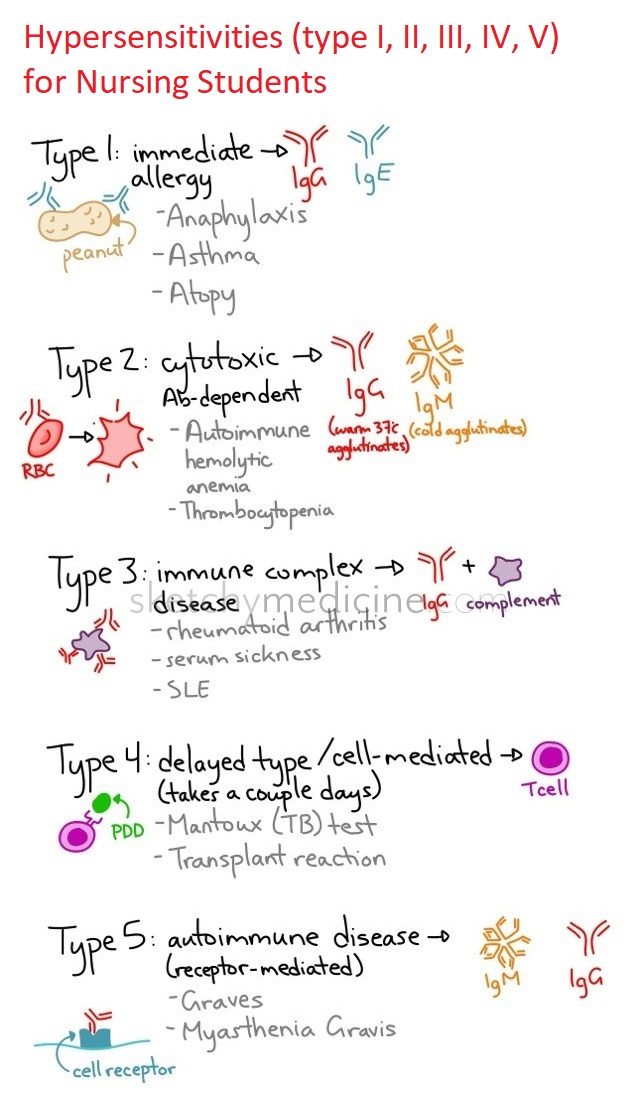 Hypersensitivities (type I, II, III, IV, V)
for Nursing Students
Type 1: immediate → IgG IgE
allergy
peanut
- Anaphylaxis
- Asthma
- Atopy
Type 2: cytotoxic → IgG IgM
Ab-dependent
(warm 37c agglutinates)
(cold agglutinates)
RBC
- Autoimmune
hemolytic
anemia
- Thrombocytopenia
Type 3: immune complex → IgG + complement
disease
sketchymedicine.com
- rheumatoid arthritis
- serum sickness
- SLE
Type 4: delayed type/cell-mediated → Tcell
(takes a couple days)
PDD
- Mantoux (TB) test
- Transplant reaction
Type 5: autoimmune disease → IgM IgG
(receptor-mediated)
- Graves
- Myasthenia Gravis
cell receptor